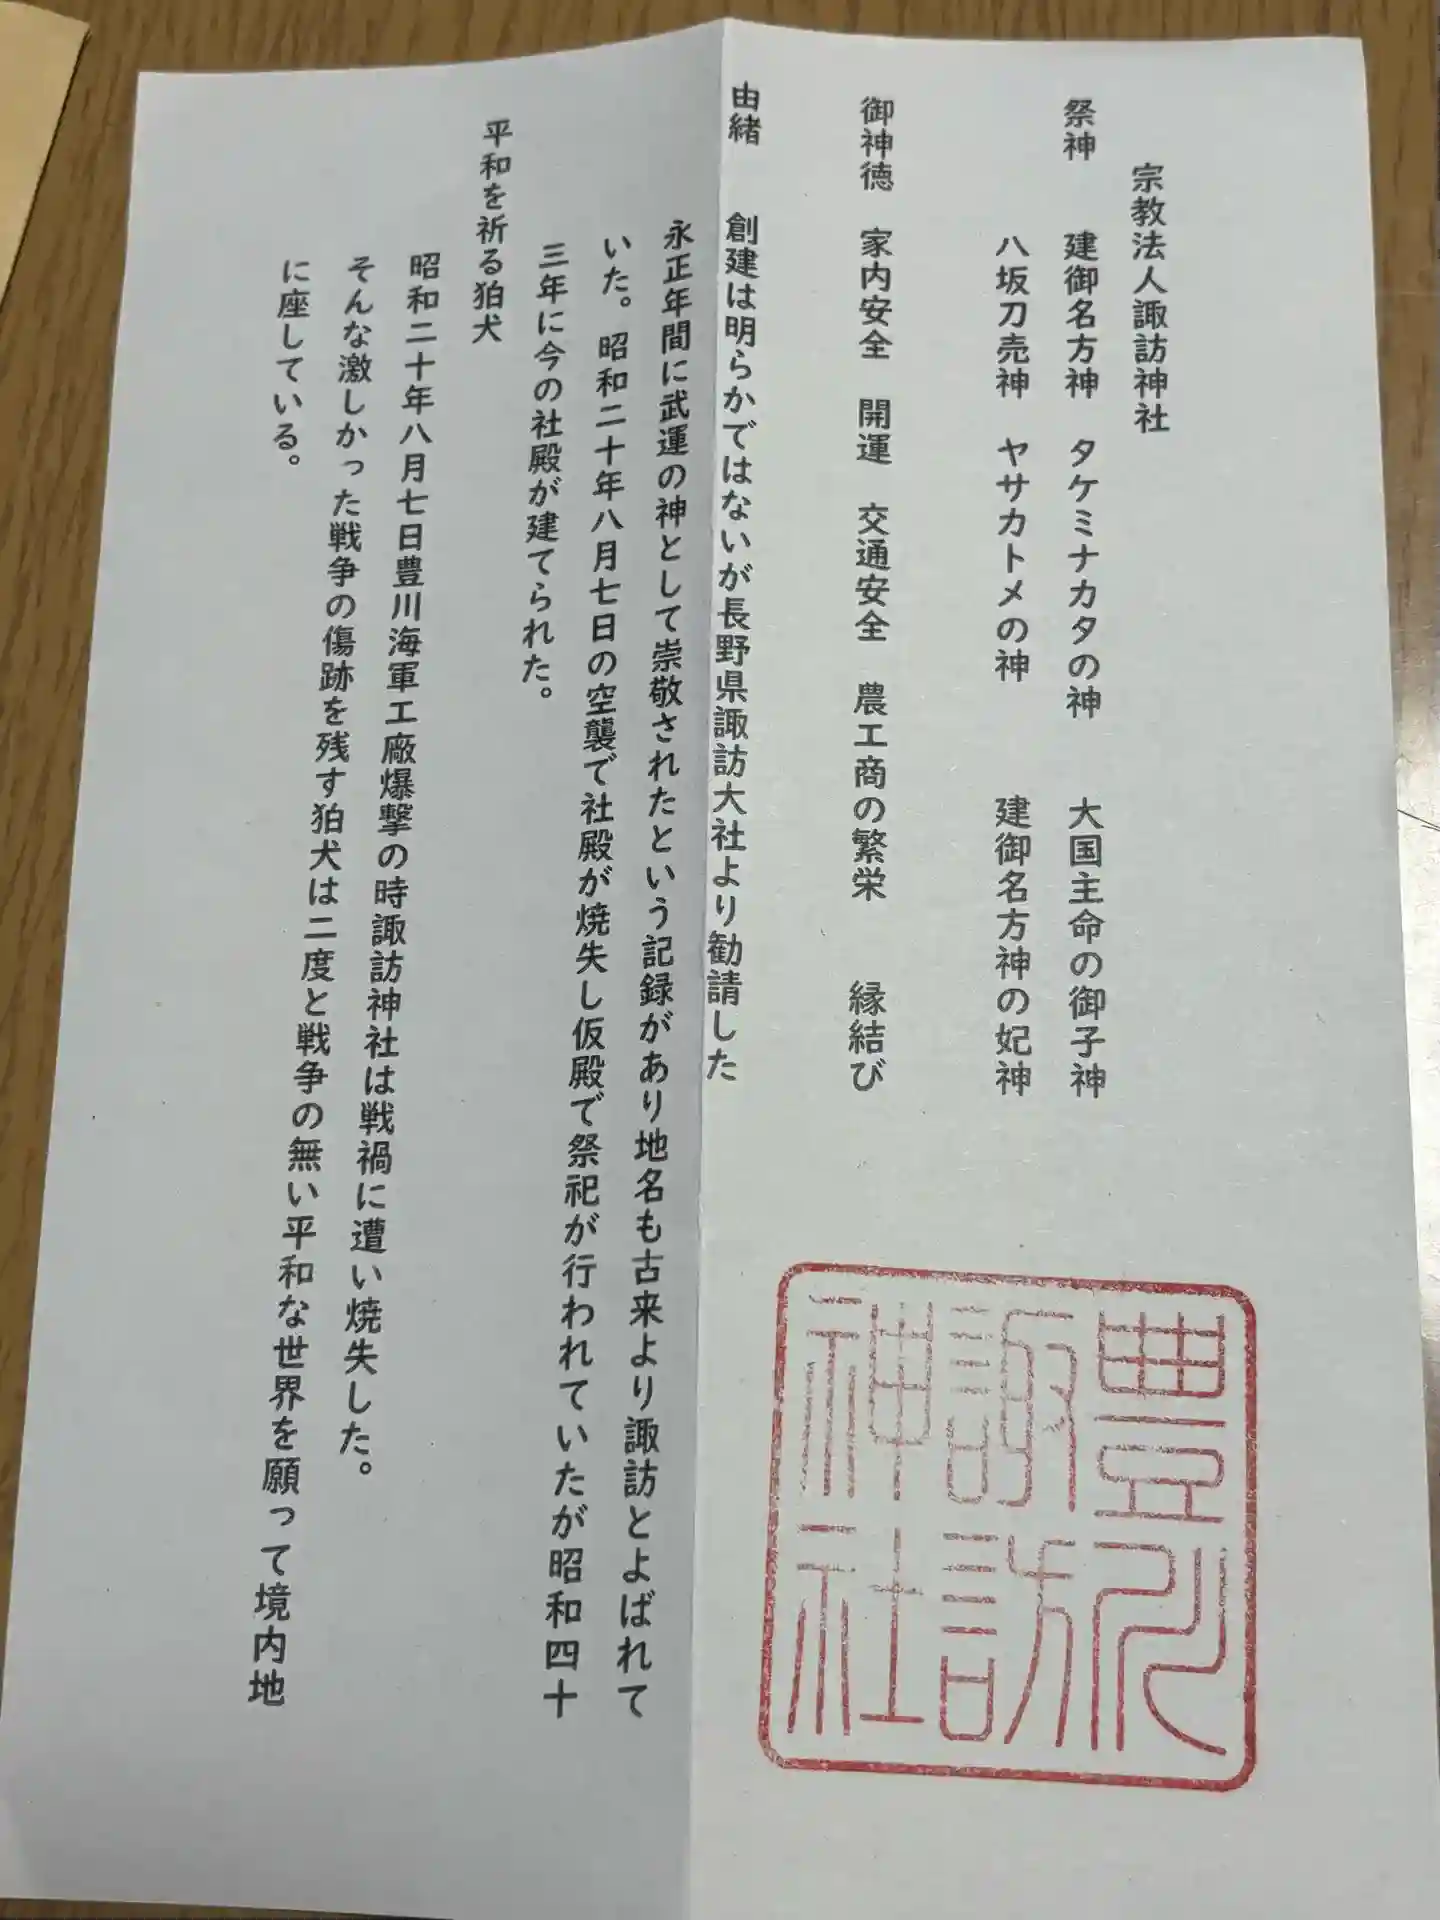 宗教法人諏訪神社
祭神 建御名方神 タケミナカタの神 大国主命の御子神
八坂刀売神 ヤサカトメの神 建御名方神の妃神
御神徳 家内安全 開運 交通安全 農工商の繁栄 縁結び
由緒 創建は明らかではないが長野県諏訪大社より勧請した
永正年間に武運の神として崇敬されたという記録があり地名も古来より諏訪とよばれて
いた。昭和二十年八月七日の空襲で社殿が焼失し仮殿で祭祀が行われていたが昭和四十
三年に今の社殿が建てられた。
平和を祈る狛犬
昭和二十年八月七日豊川海軍工廠爆撃の時諏訪神社は戦禍に遭い焼失した。
そんな激しかった戦争の傷跡を残す狛犬は二度と戦争の無い平和な世界を願って境内地
に座している。
豊川
諏訪
神社